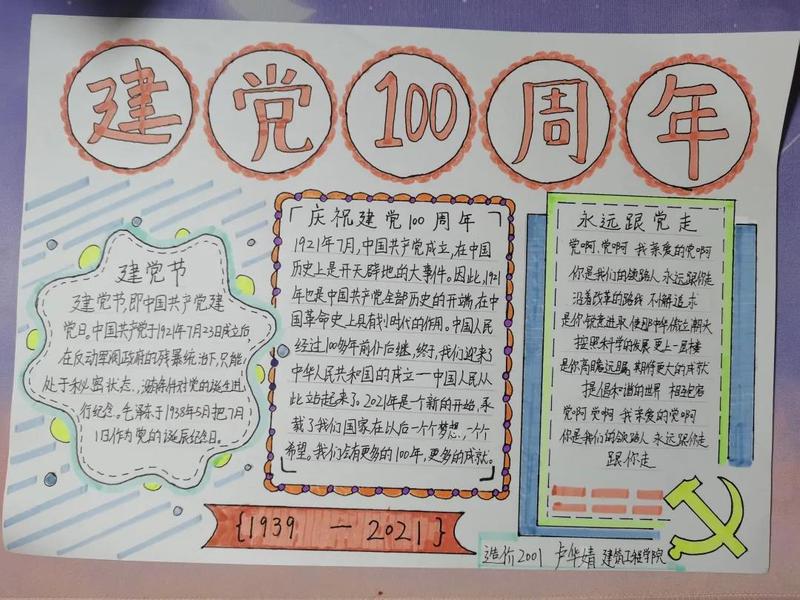 建党100周年
建党节
建党节,即中国共产党建
党日。中国共产党于1921年7月23日成立后,
在反动军阀政府的残暴统治下,只能
处于秘密状态,没条件对党的诞生进
行纪念。毛泽东于1938年5月把7月
1日作为党的诞辰纪念日。
「庆祝建党100周年
1921年7月,中国共产党成立,在中国
历史上是开天辟地的大事件。因此,1921
年也是中国共产党全部历史的开端,在中
国革命史上具有划时代的作用。中国人民
经过100多年前仆后继,终于,我们迎来了
中华人民共和国的成立一中国人民从
此站起来了。2021年是一个新的开始,承
载了我们国家在以后一个个梦想,一个个
希望。我们会有更多的100年,更多的成就。
永远跟党走
党啊,党啊 我亲爱的党啊
你是我们的领路人 永远跟你走
沿着改革的路线 不懈追求
是你锐意进取 使那中华傲立潮头
按照科学的发展 更上一层楼
是你高瞻远瞩 期待更大的成就
提倡和谐的世界
党啊 党啊 我亲爱的党啊
你是我们的领路人 永远跟你走
跟你走
{1939 — 2021}
造价2001 卢华婧 建筑工程学院